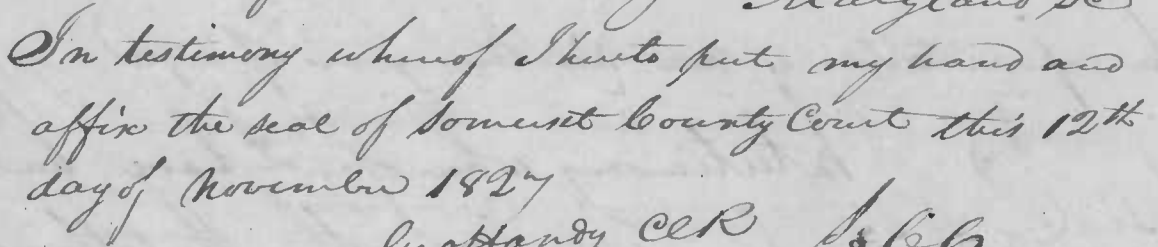 Maryland Sc
In testimony whereof I hereto put my hand and
affix the seal of Somerset County Court this 12th
day of November 1827
Handy Clk